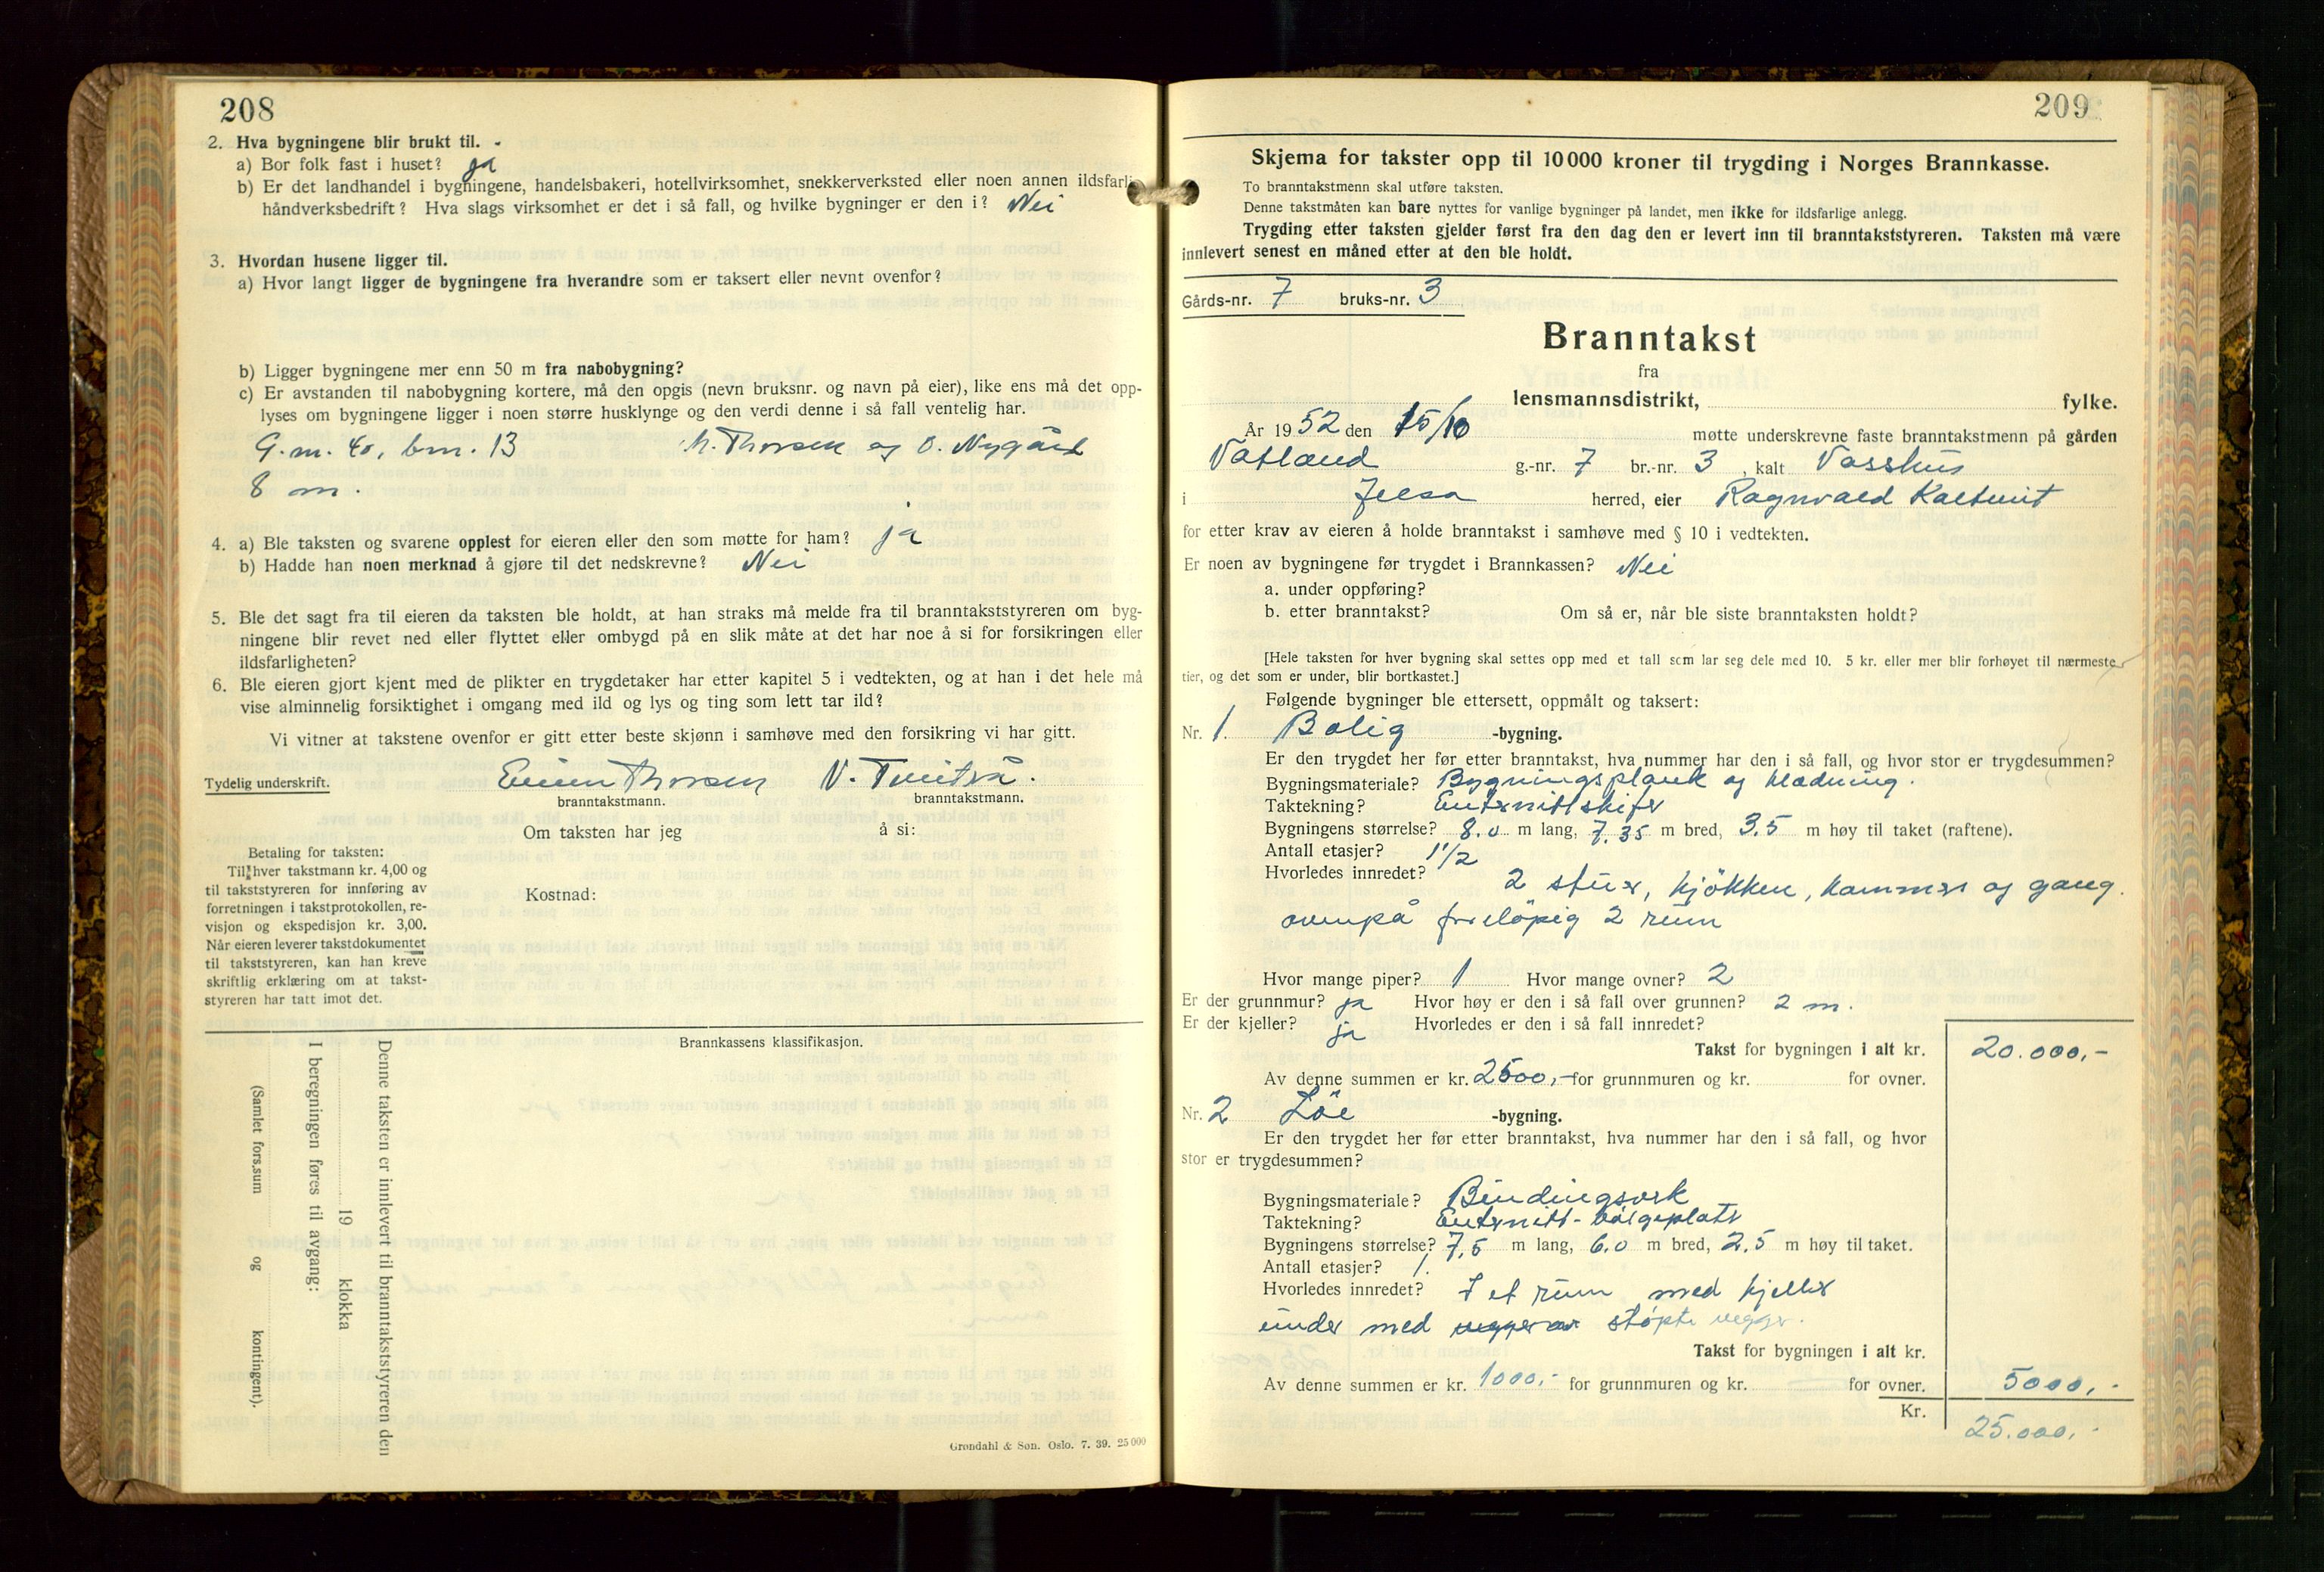 208
2. Hva bygningene blir brukt til. -
a) Bor folk fast i huset? ja
b) Er det landhandel i bygningene, handelsbakeri, hotellvirksomhet, snekkerverksted eller noen annen ildsfarlig
håndverksbedrift? Hva slags virksomhet er det i så fall, og hvilke bygninger er den i? Nei
3. Hvordan husene ligger til.
a) Hvor langt ligger de bygningene fra hverandre som er taksert eller nevnt ovenfor?
b) Ligger bygningene mer enn 50 m fra nabobygning?
c) Er avstanden til nabobygning kortere, må den opgis (nevn bruksnr. og navn på eier), like ens må det opp-
lyses om bygningene ligger i noen større husklynge og den verdi denne i så fall ventelig har.
G.nr. 40, bnr. 13 Thorsen og O. Nygård
8 m.
4. a) Ble taksten og svarene opplest for eieren eller den som møtte for ham? ja
b) Hadde han noen merknad å gjøre til det nedskrevne? Nei
5. Ble det sagt fra til eieren da taksten ble holdt, at han straks må melde fra til branntakststyreren om byg-
ningene blir revet ned eller flyttet eller ombygd på en slik måte at det har noe å si for forsikringen eller
ildsfarligheten?
6. Ble eieren gjort kjent med de plikter en trygdetaker har etter kapitel 5 i vedtekten, og at han i det hele må
vise alminnelig forsiktighet i omgang med ild og lys og ting som lett tar ild?
Vi vitner at takstene ovenfor er gitt etter beste skjønn i samhøve med den forsikring vi har gitt.
Tydelig underskrift. Thorsen
branntakstmann. branntakstmann.
Om taksten har jeg å si:
Betaling for taksten:
Til hver takstmann kr. 4,00 og
til takststyreren for innføring av
forretningen i takstprotokollen, re-
visjon og ekspedisjon kr. 3,00.
Når eieren leverer takstdokumentet
til takststyreren, kan han kreve
skriftlig erklæring om at takst-
styreren har tatt imot det.
Kostnad:
Brannkassens klassifikasjon.
Denne taksten er innlevert til branntakststyreren den
19 klokka
I beregningen føres til avgang:
(Samlet fors.sum og kontingent).
Grøndahl & Søn. Oslo. 7. 39. 25 000
209
Skjema for takster opp til 10 000 kroner til trygding i Norges Brannkasse.
To branntakstmenn skal utføre taksten.
Denne takstmåten kan bare nyttes for vanlige bygninger på landet, men ikke for ildsfarlige anlegg.
Trygding etter taksten gjelder først fra den dag den er levert inn til branntakststyreren. Taksten må være
innlevert senest en måned etter at den ble holdt.
Gårds-nr. 7 bruks-nr. 3
Branntakst
fra
lensmannsdistrikt, fylke.
År 1952 den 15/10 møtte underskrevne faste branntakstmenn på gården
Vatland g.-nr. 7 br.-nr. 3, kalt Vasshus
i Jelsa herred, eier Ragnvald Kaltveit
for etter krav av eieren å holde branntakst i samhøve med § 10 i vedtekten.
Er noen av bygningene før trygdet i Brannkassen? Nei
a. under oppføring?
b. etter branntakst? Om så er, når ble siste branntaksten holdt?
[Hele taksten for hver bygning skal settes opp med et tall som lar seg dele med 10. 5 kr. eller mer blir forhøyet til nærmeste
tier, og det som er under, blir bortkastet.]
Følgende bygninger ble ettersett, oppmålt og taksert:
Nr. 1. Bolig -bygning.
Er den trygdet her før etter branntakst, hva nummer har den i så fall, og hvor stor er trygdesummen?
Bygningsmateriale? Bygningsplank og klædning.
Taktekning? Euternittskifer
Bygningens størrelse? 8.0 m lang, 7.35 m bred, 3.5 m høy til taket (raftene).
Antall etasjer? 1 1/2
Hvorledes innredet? 2 stuer, kjøkken, kammer og gang.
ovenpå foreløpig 2 rum
Hvor mange piper? 1 Hvor mange ovner? 2
Er der grunnmur? ja Hvor høy er den i så fall over grunnen? 2 m.
Er der kjeller? ja Hvorledes er den i så fall innredet?
Takst for bygningen i alt kr. 20.000,-
Av denne summen er kr. 2500,- for grunnmuren og kr. for ovner.
Nr. 2 Löe -bygning.
Er den trygdet her før etter branntakst, hva nummer har den i så fall, og hvor
stor er trygdesummen?
Bygningsmateriale? Bindingsverk
Taktekning? Euternitt-bölgeplater
Bygningens størrelse? 7.5 m lang, 6.0 m bred, 2.5 m høy til taket.
Antall etasjer? 1.
Hvorledes innredet? I et rum med kjeller
under med støpte vegger.
Takst for bygningen i alt kr.
Av denne summen er kr. 1000.- for grunnmuren og kr. for ovner. 5000,-
Kr. 25.000,-